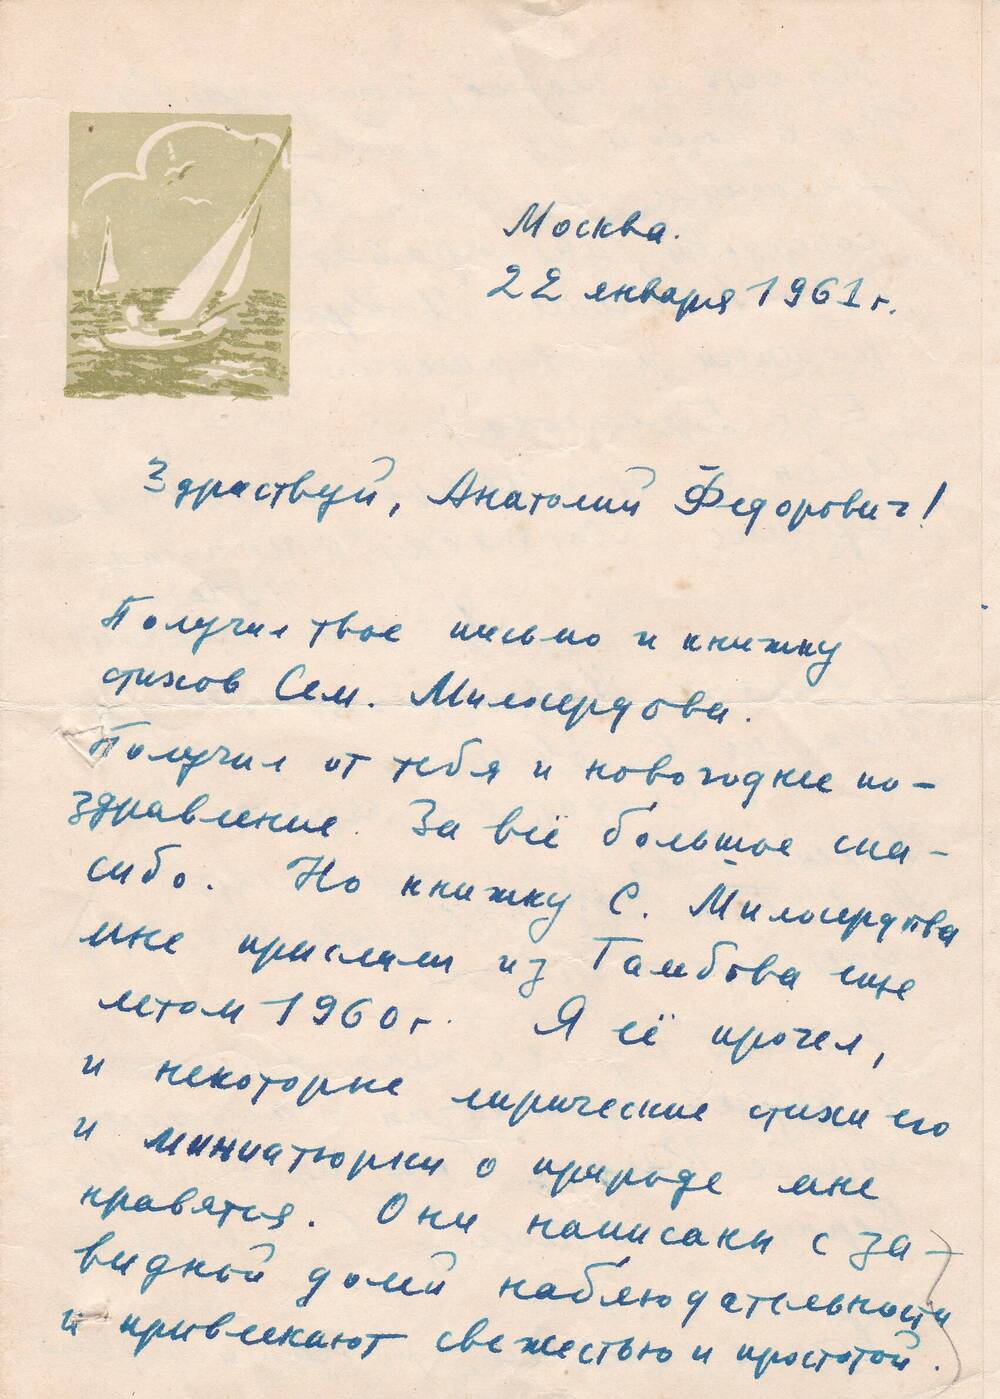 Москва.
22 января 1961 г.
Здраствуй, Анатолий Федорович!
Получил твое письмо и книжку
стихов Сем. Милосердова.
Получил от тебя и новогоднее по-
здравление. За всё большое спа-
сибо. Но книжку С. Милосердова
мне прислали из Тамбова еще
летом 1960 г. Я её прочел,
и некоторые лирические стихи его
и миниатюрки о природе мне
нравятся. Они написаны с за-
видной долей наблюдательности
и привлекают свежестью и простотой.